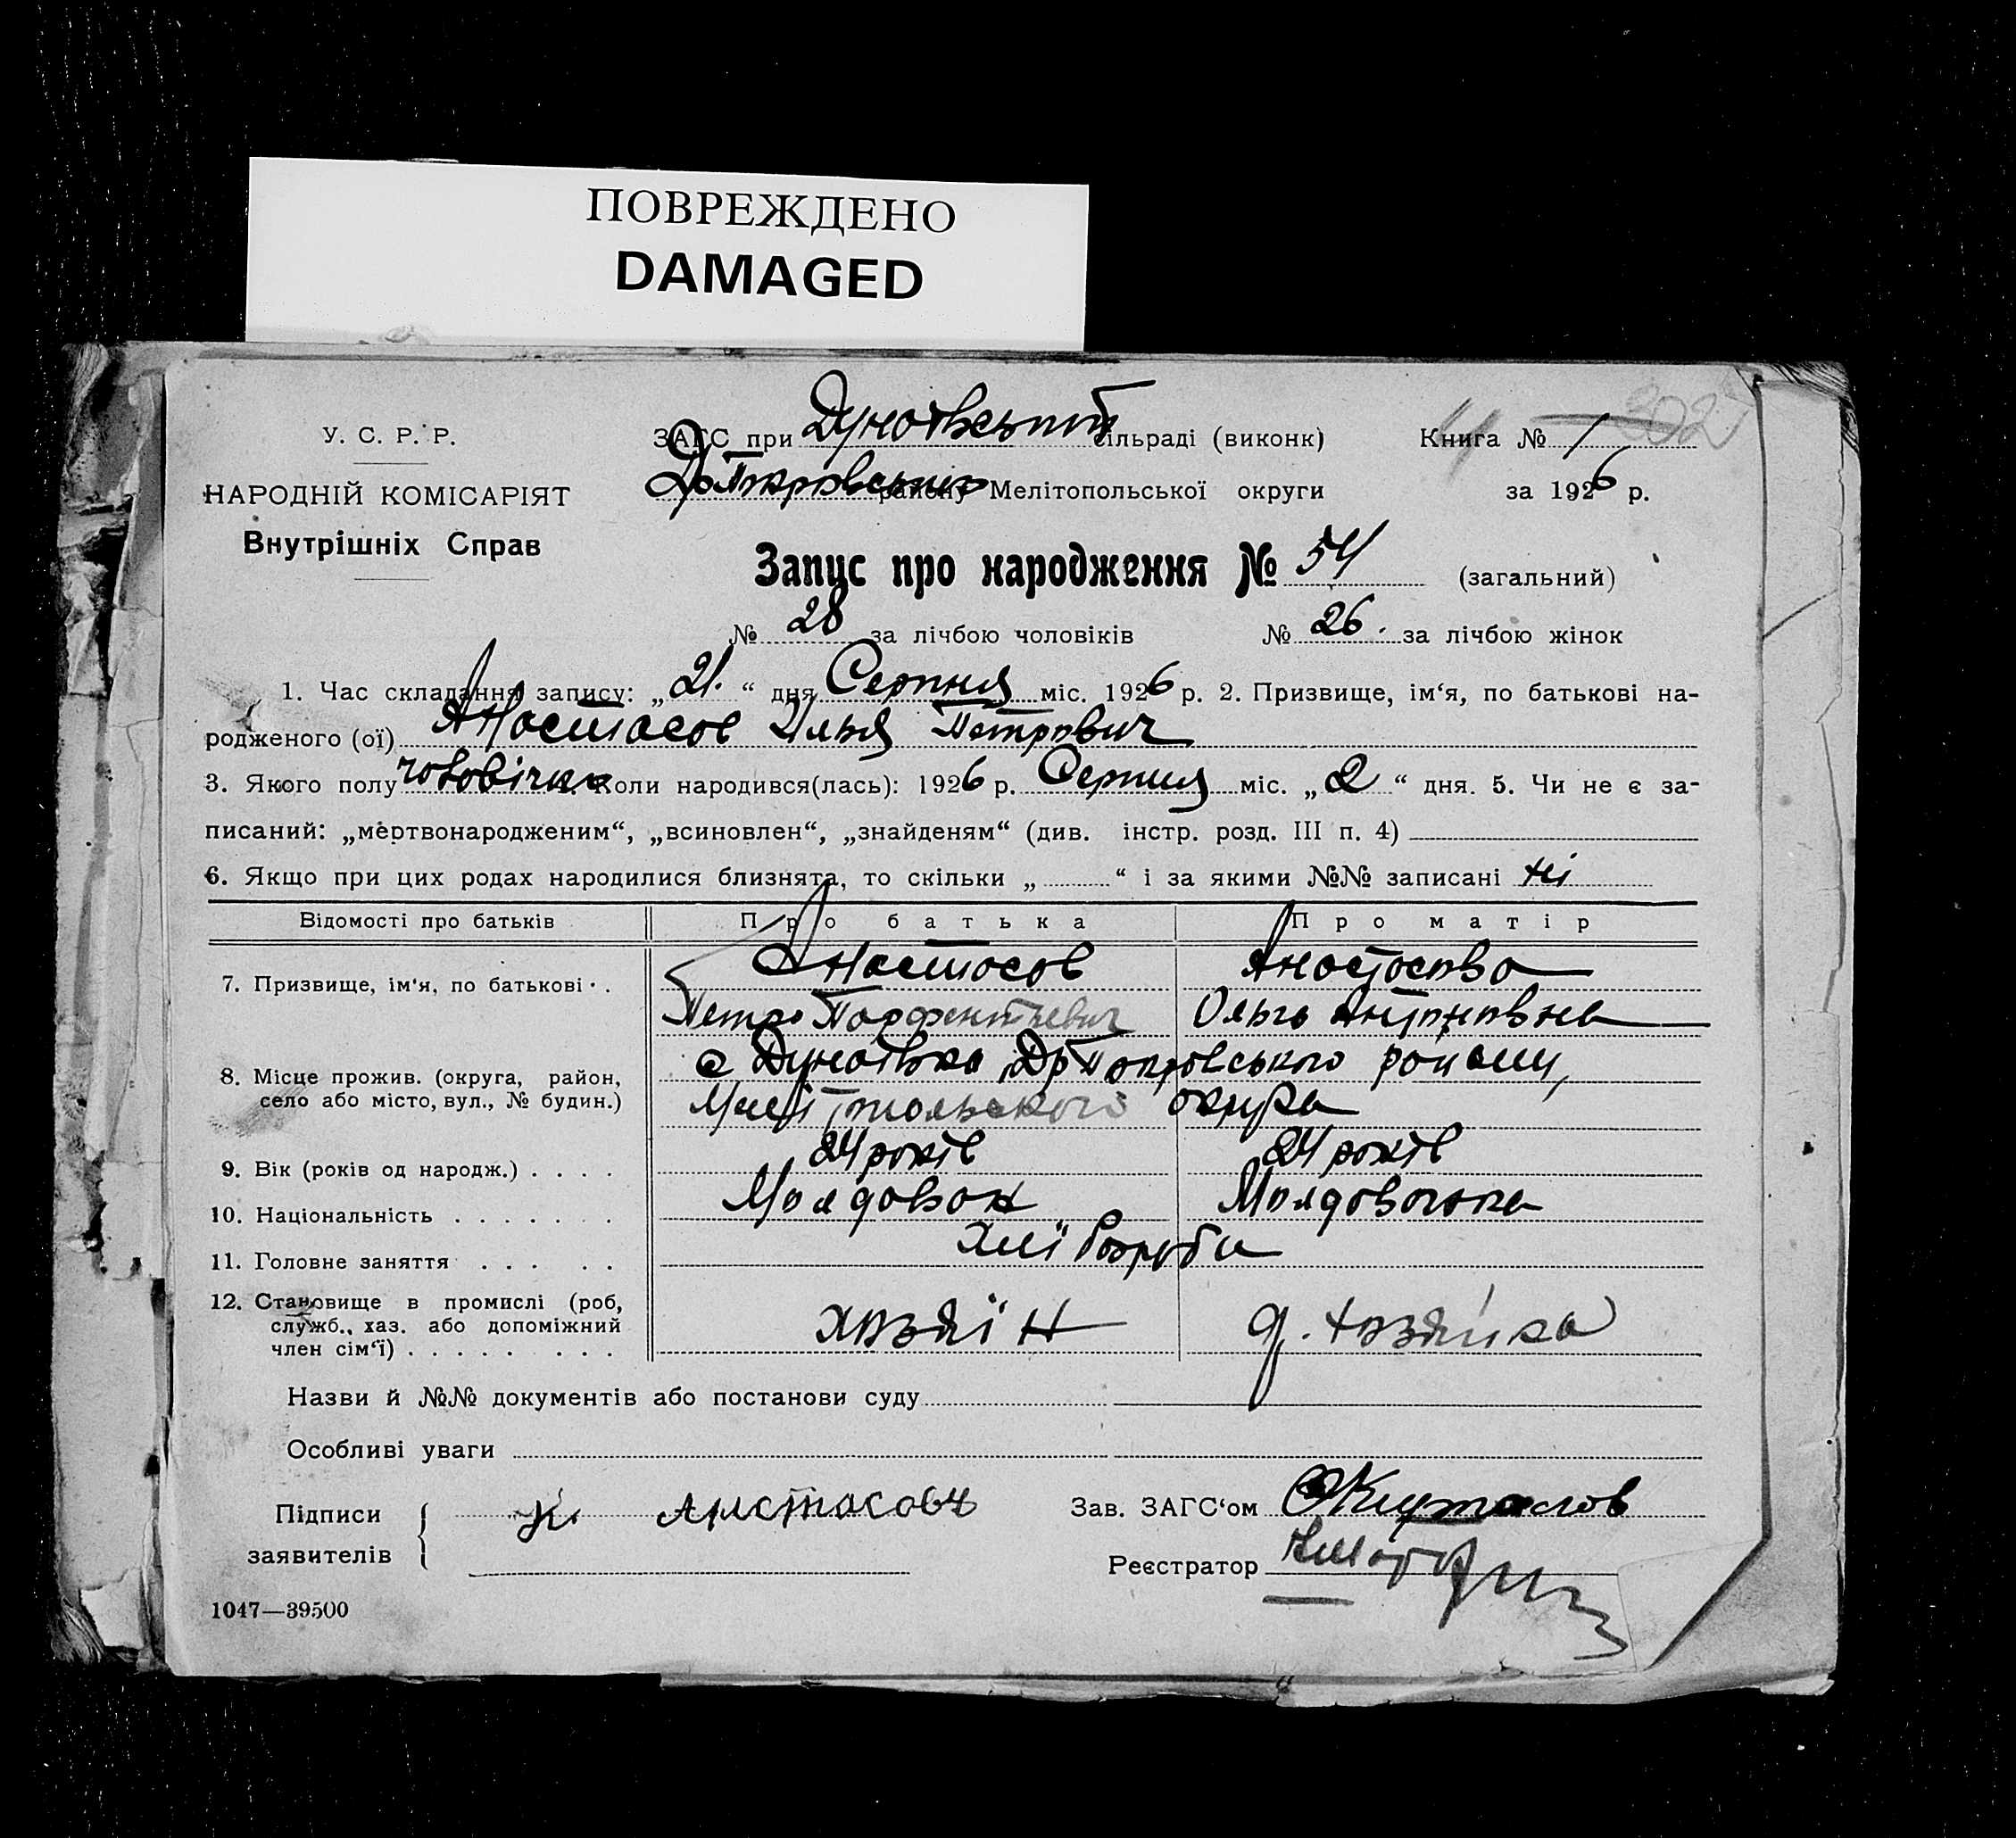 ПОВРЕЖДЕНО
DAMAGED
У. С. Р. Р.
НАРОДНІЙ КОМІСАРІЯТ
Внутрішніх Справ
ЗАГС при Дунаївський сільраді (виконк)
району Мелітопольської округи
Книга № 1
302
за 1926 р.
Запис про народження № 54 (загальний)
№ 28 за лічбою чоловіків № 26. за лічбою жінок
1. Час складання запису: „21.“ дня Серпня міс. 1926 р. 2. Призвище, ім‘я, по батькові на-
родженого (ої) Анастасов Илья Петрович
3. Якого полу чоловічи Коли народився(лась): 1926 р. Серпня міс. „2“ дня. 5. Чи не є за-
писаний: „мертвонародженим“, „всиновлен“, „знайденям“ (див. інстр. розд. III п. 4)
6. Якщо при цих родах народилися близнята, то скільки „ “ і за якими №№ записані ні
Відомості про батьків Про батька Про матір
7. Призвище, ім‘я, по батькові . . Анастасов Анастасова
Петро Парфентіевич Ольга Антоновна
8. Місце прожив. (округа, район, село або місто, вул., № будин.) с Дунаївка, Др Покровського району,
Мелітопольського округа
9. Вік (років од народж.) . . . . 24 років 24 років
10. Національність . . . . . . . Молдован Молдованка
11. Головне заняття . . . . . Хліборобы
12. Становище в промислі (роб, служб., хаз. або допоміжний член сім‘ї) . . . . . . . . . хозяїн д. хозяйка
Назви й №№ документів або постанови суду
Особливі уваги
Підписи заявителів
Зав. ЗАГС‘ом
Реєстратор
1047—39500